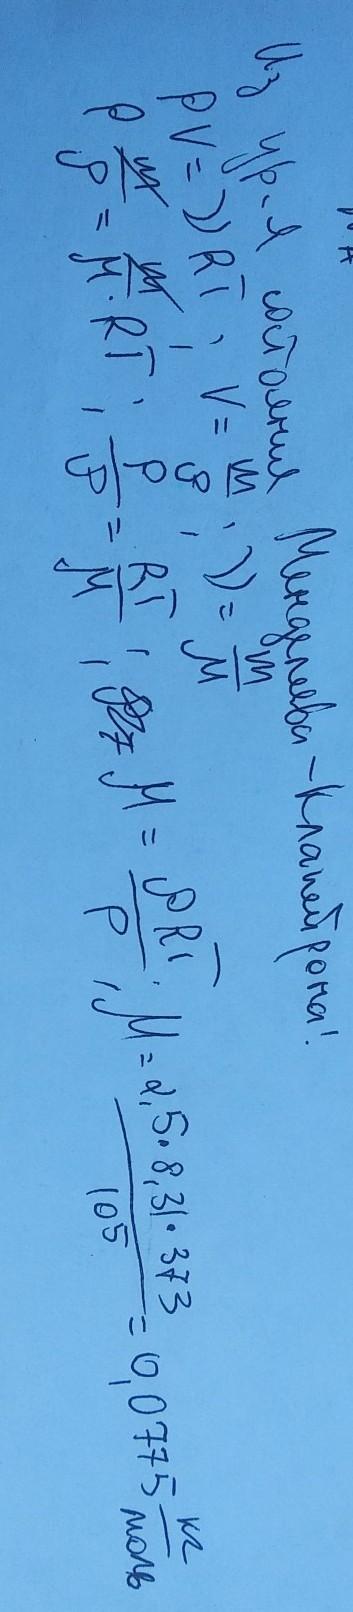 Из ур-я состояния Менделеева-Клапейрона!
PV = νRT, V = m/ρ, ν = m/M
P m/ρ = m/M · RT, P/ρ = RT/M, M = ρRT/P, M = 2,5·8,31·373/10⁵ = 0,0775 кг/моль